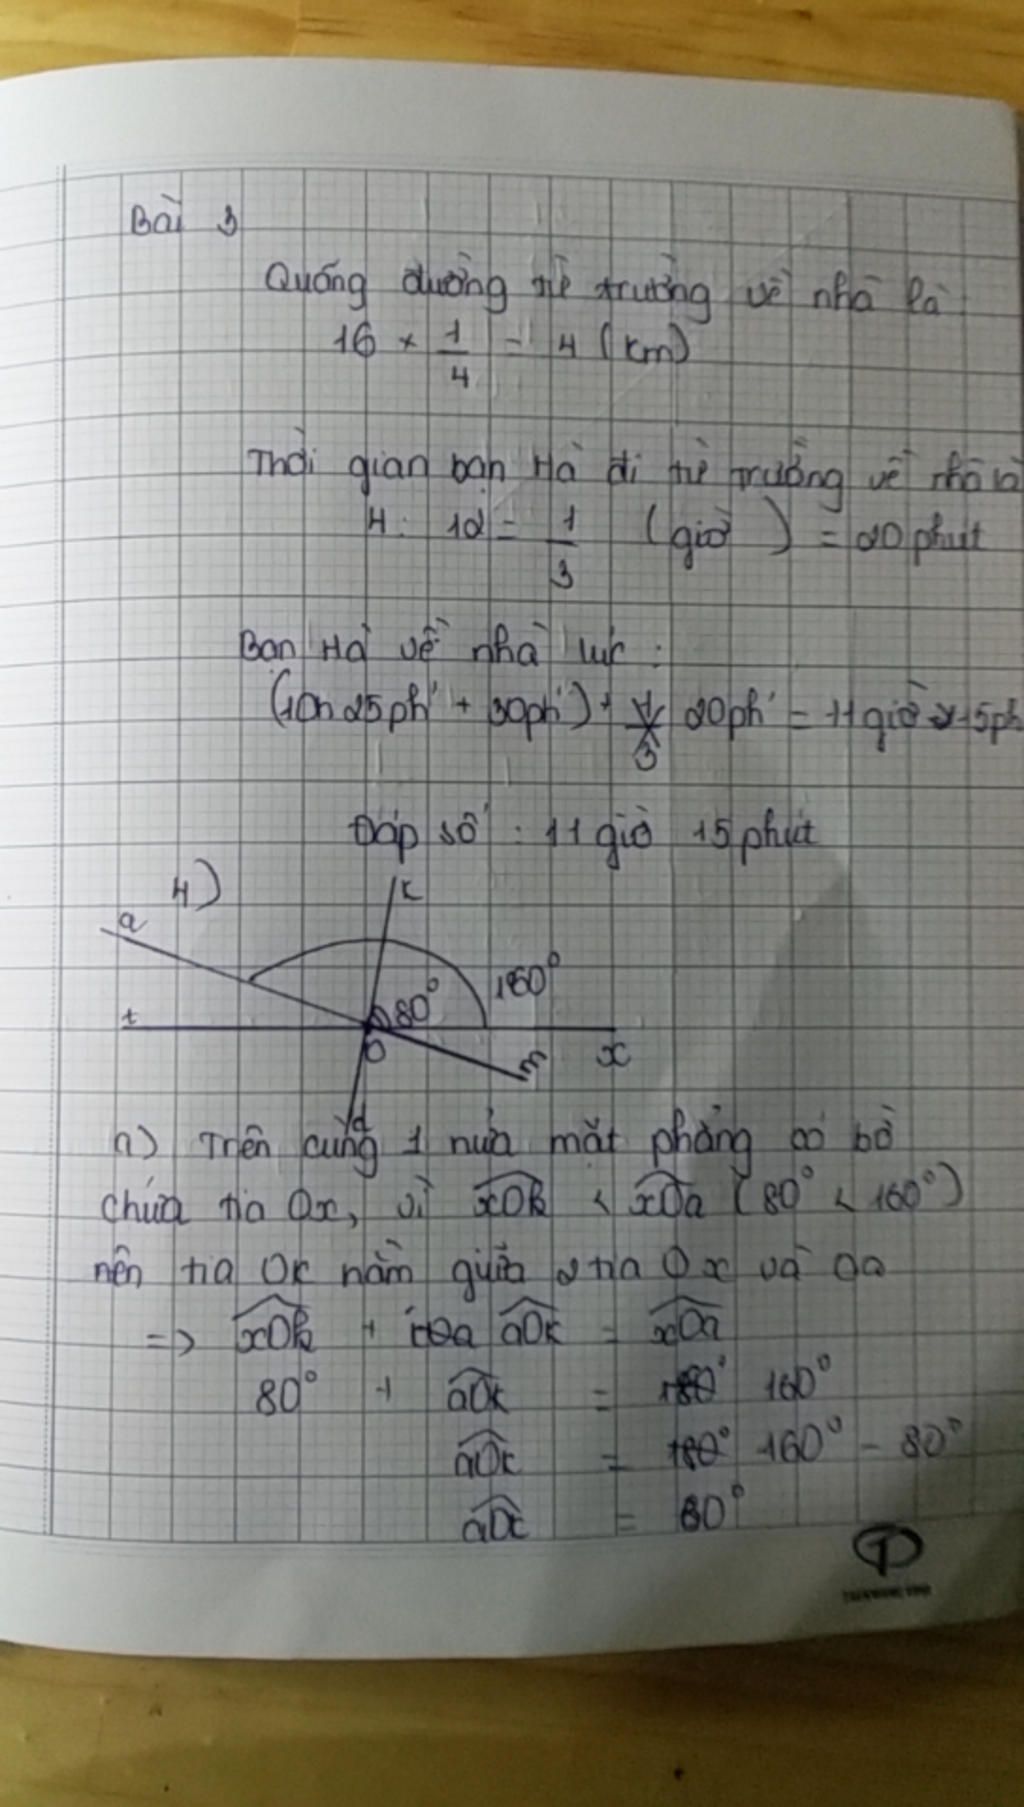 Bài 3
Quãng đường từ trường về nhà là
16 × 1/4 = 4 (km)
Thời gian bạn Hà đi từ trường về nhà là
4 : 12 = 1/3 (giờ) = 20 phút
Bạn Hà về nhà lúc :
(10h 25ph + 30ph) + 20ph = 11 giờ 15ph
Đáp số : 11 giờ 15 phút
4)
a
k
160°
80°
t
O
x
m
d
a) Trên cùng 1 nửa mặt phẳng có bờ
chứa tia Ox, vì xOk < xOa (80° < 160°)
nên tia Ok nằm giữa 2 tia Ox và Oa
=> xOk + aOk = xOa
80° + aOk = 160°
aOk = 160° - 80°
aOk = 80°